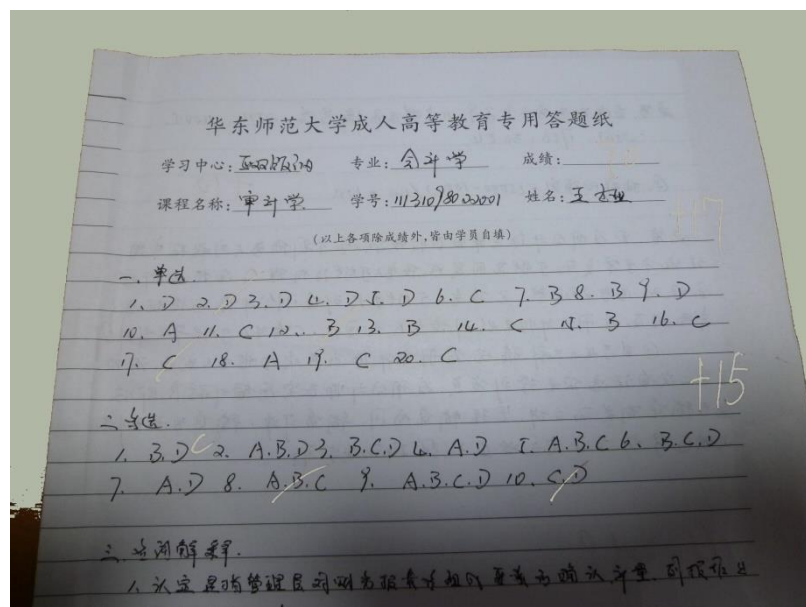 华东师范大学成人高等教育专用答题纸
学习中心: 专业:会计学 成绩:
课程名称:审计学 学号: 姓名:王
(以上各项除成绩外,皆由学员自填)
+17
一、单选
1、D 2、D 3、D 4、D 5、D 6、C 7、B 8、B 9、D
10、A 11、C 12、B 13、B 14、C 15、B 16、C
17、C 18、A 19、C 20、C
+15
二、多选.
1、B.D C 2、A.B.D 3、B.C.D 4、A.D 5、A.B.C 6、B.C.D
7、A.D 8、A.B.C 9、A.B.C.D 10、C.D
三、名词解释.
1、认定是指管理层对财务报表